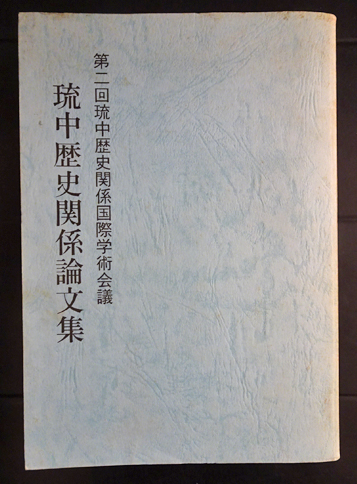 第二回琉中歴史関係国際学術会議
琉中歴史関係論文集